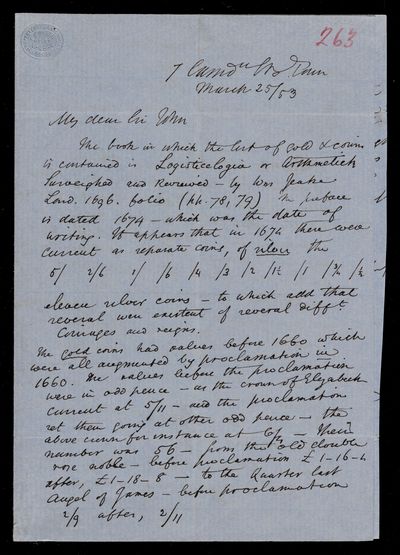 263
7 Camdn St. Town
March 25/53
My dear Sir John
The book in which the list of gold & coins
is contained is Logisticelogia or Arithmetick
Surveighed and Reviewed — by Wm Jeake
Lond. 1696. folio (pp. 78, 79) The preface
is dated 1674 — which was the date of
writing. It appears that in 1674 there were
current as separate coins, of silver the
5/ 2/6 1/ /6 /4 /3 /2 /1½ /1 /¾ /½
eleven silver coins — to which add that
several were existent of several difft.
Coinages and reigns.
The gold coins had values before 1660 which
were all augmented by proclamation in
1660. The values before the proclamation
were in odd pence — as the crown of Elizabeth
current at 5/11 — and the proclamation
set them going at other odd pence — the
above crown for instance at — Their
number was 56 — from the old double
rose noble — before proclamation £ 1-16-
after, £1-18-8 — to the Quarter last
Angel of James — before proclamation
2/9 after, 2/11